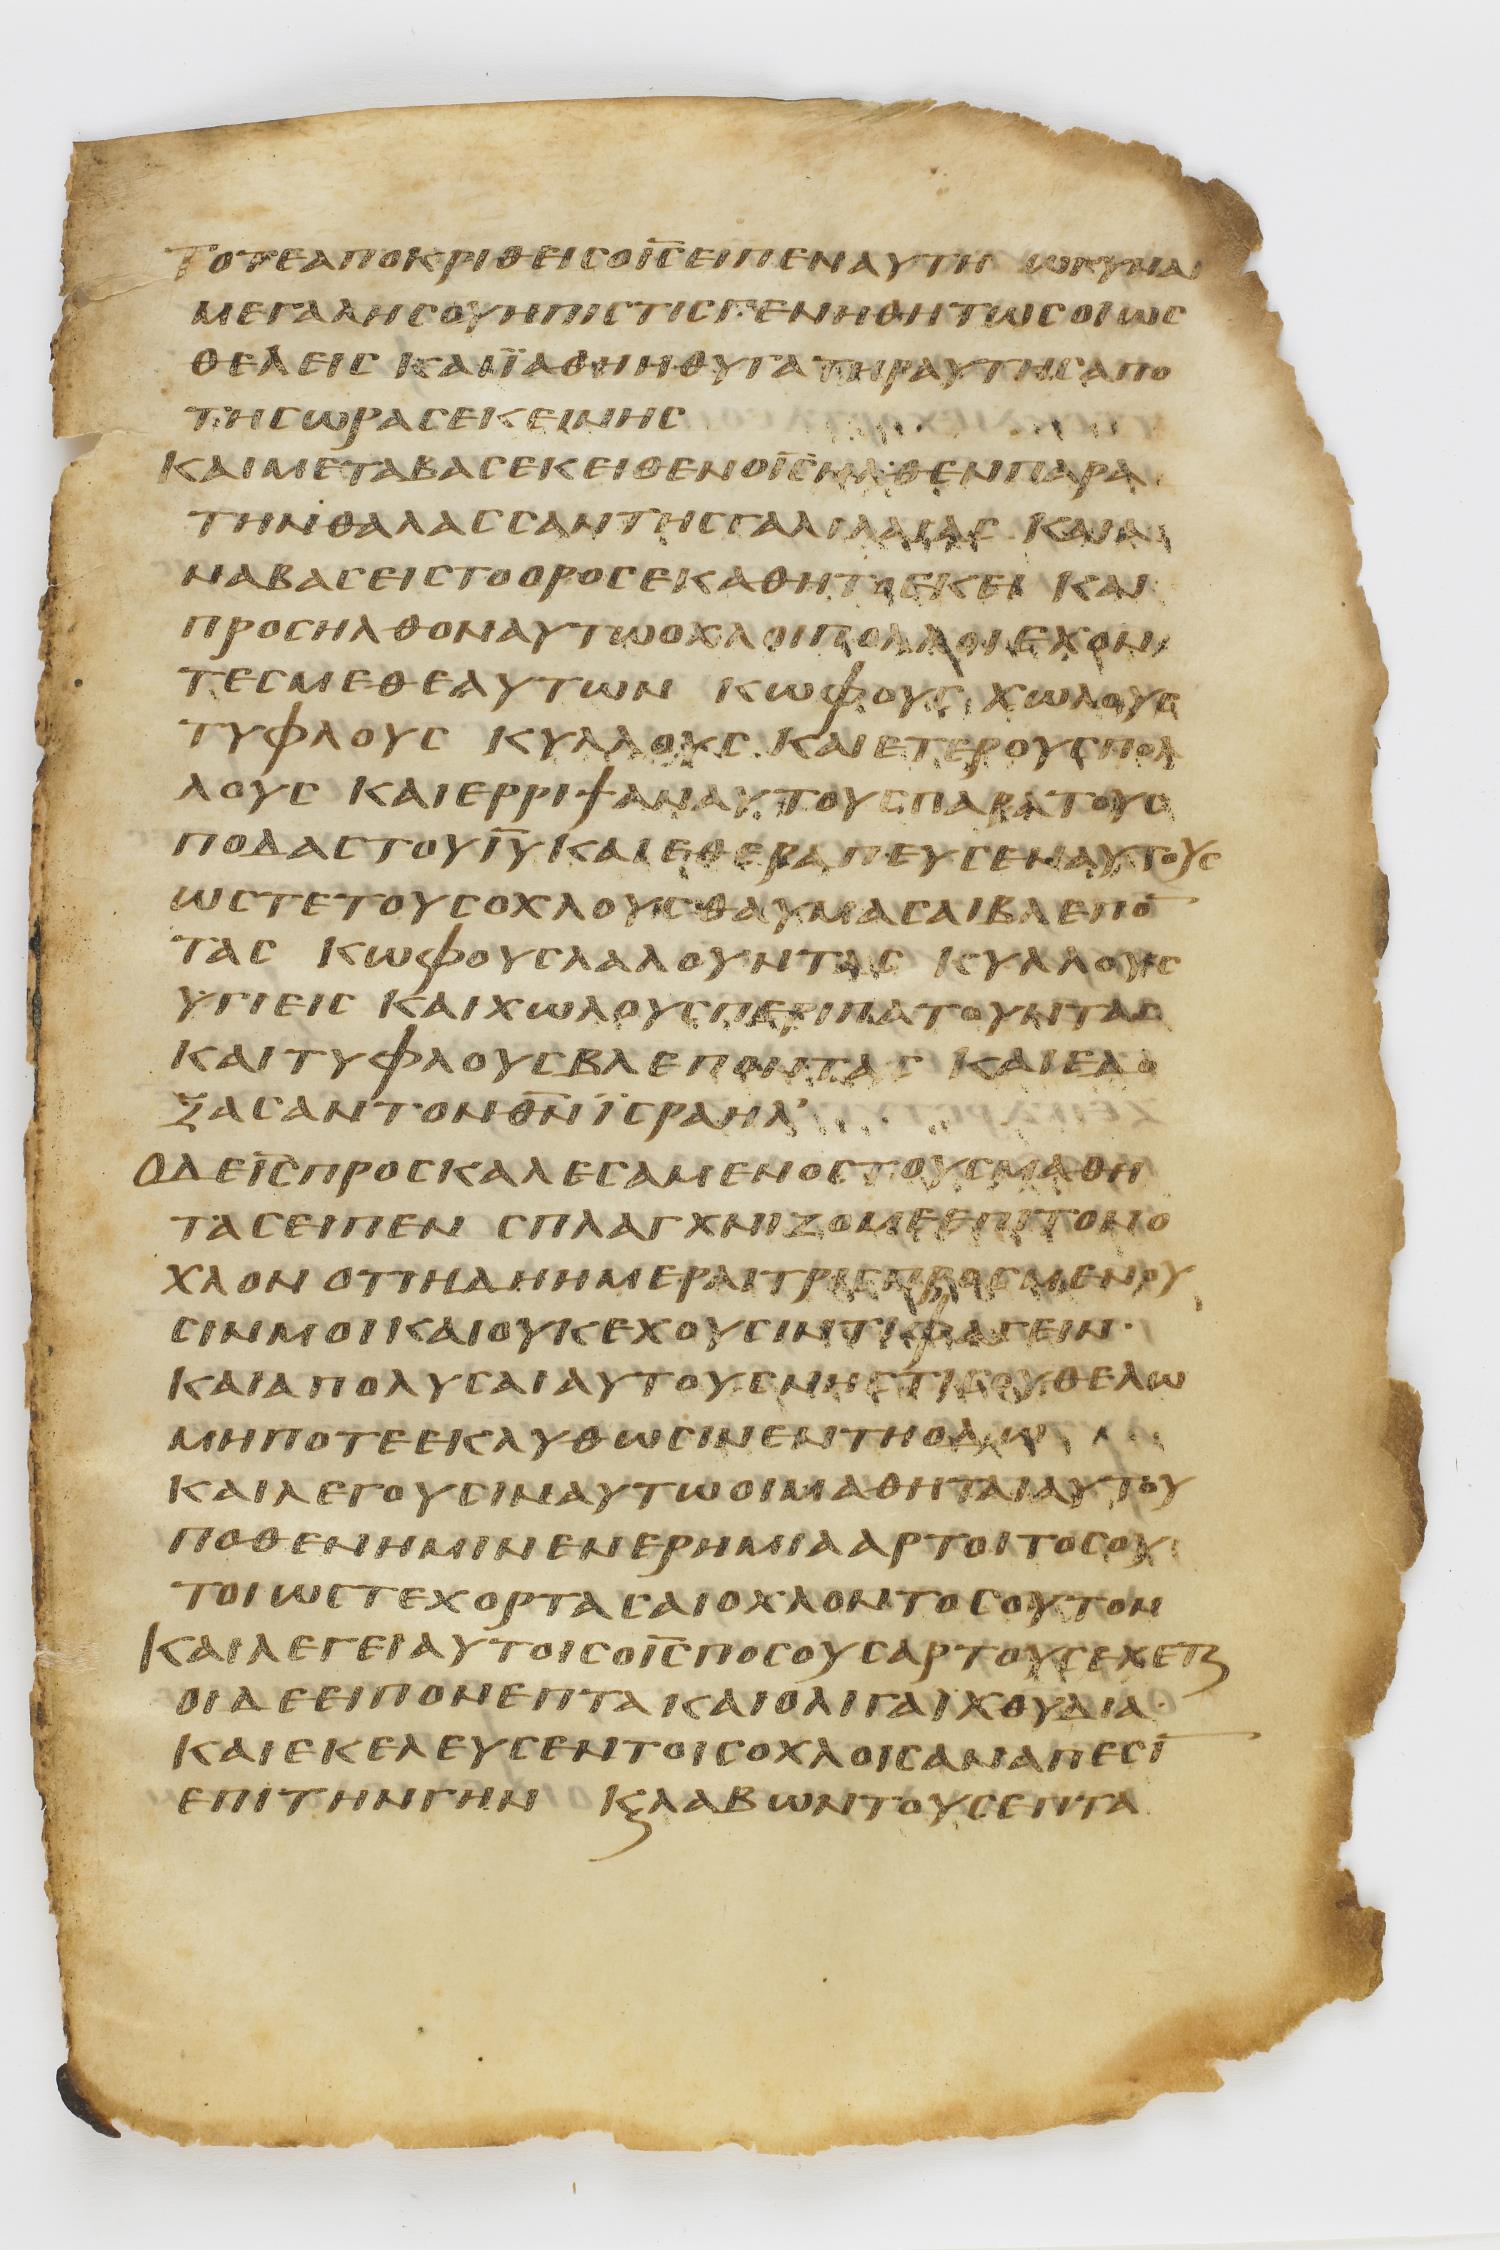 Τοτεαποκριθεισοι̅σ̅ειπεναυτη ωγυναι
μεγαλησουηπιστισγενηθητωσοιως
θελεις καιϊαθηηθυγατηραυτησαπο
τησωρασεκεινης
Καιμεταβασεκειθενοι̅σ̅ηλθενπαρα
τηνθαλασσαντησγαλιλαιας καια
ναβασειστοοροσεκαθητοεκει και
προσηλθοναυτωοχλοιπολλοιεχον
τεσμεθεαυτων κωφους χωλους
τυφλους κυλλους καιετερουσπολ
λους καιερριψαναυτουσπαρατους
ποδαστουι̅υ̅ καιεθεραπευσεναυτους
ωστετουσοχλουσθαυμασαιβλεπο̅
τας κωφουσλαλουντας κυλλους
υγιεις καιχωλουσπεριπατουντας
καιτυφλουσβλεποντας καιεδο
ξασαντονθ̅ν̅ϊσραηλ
Οδει̅σ̅προσκαλεσαμενοστουσμαθη
τασειπεν σπλαγχνιζομεεπιτονο
χλον οτιηδηημεραιτρισπροσμενου
σινμοικαιουκεχουσιντιφαγειν·
καιαπολυσαιαυτουσνηστισουθελω
μηποτεεκλυθωσινεντηοδω
καιλεγουσιναυτωοιμαθηταιαυτου
ποθενημινενερημιααρτοιτοσου
τοιωστεχορτασαιοχλοντοσουτον
Καιλεγειαυτοισοι̅σ̅ποσουσαρτουσεχετ
οιδεειπονεπτακαιολιγαιχθυδια·
καιεκελευσεντοισοχλοισαναπεσι̅
επιτηνγην κλαβωντουσεπτα